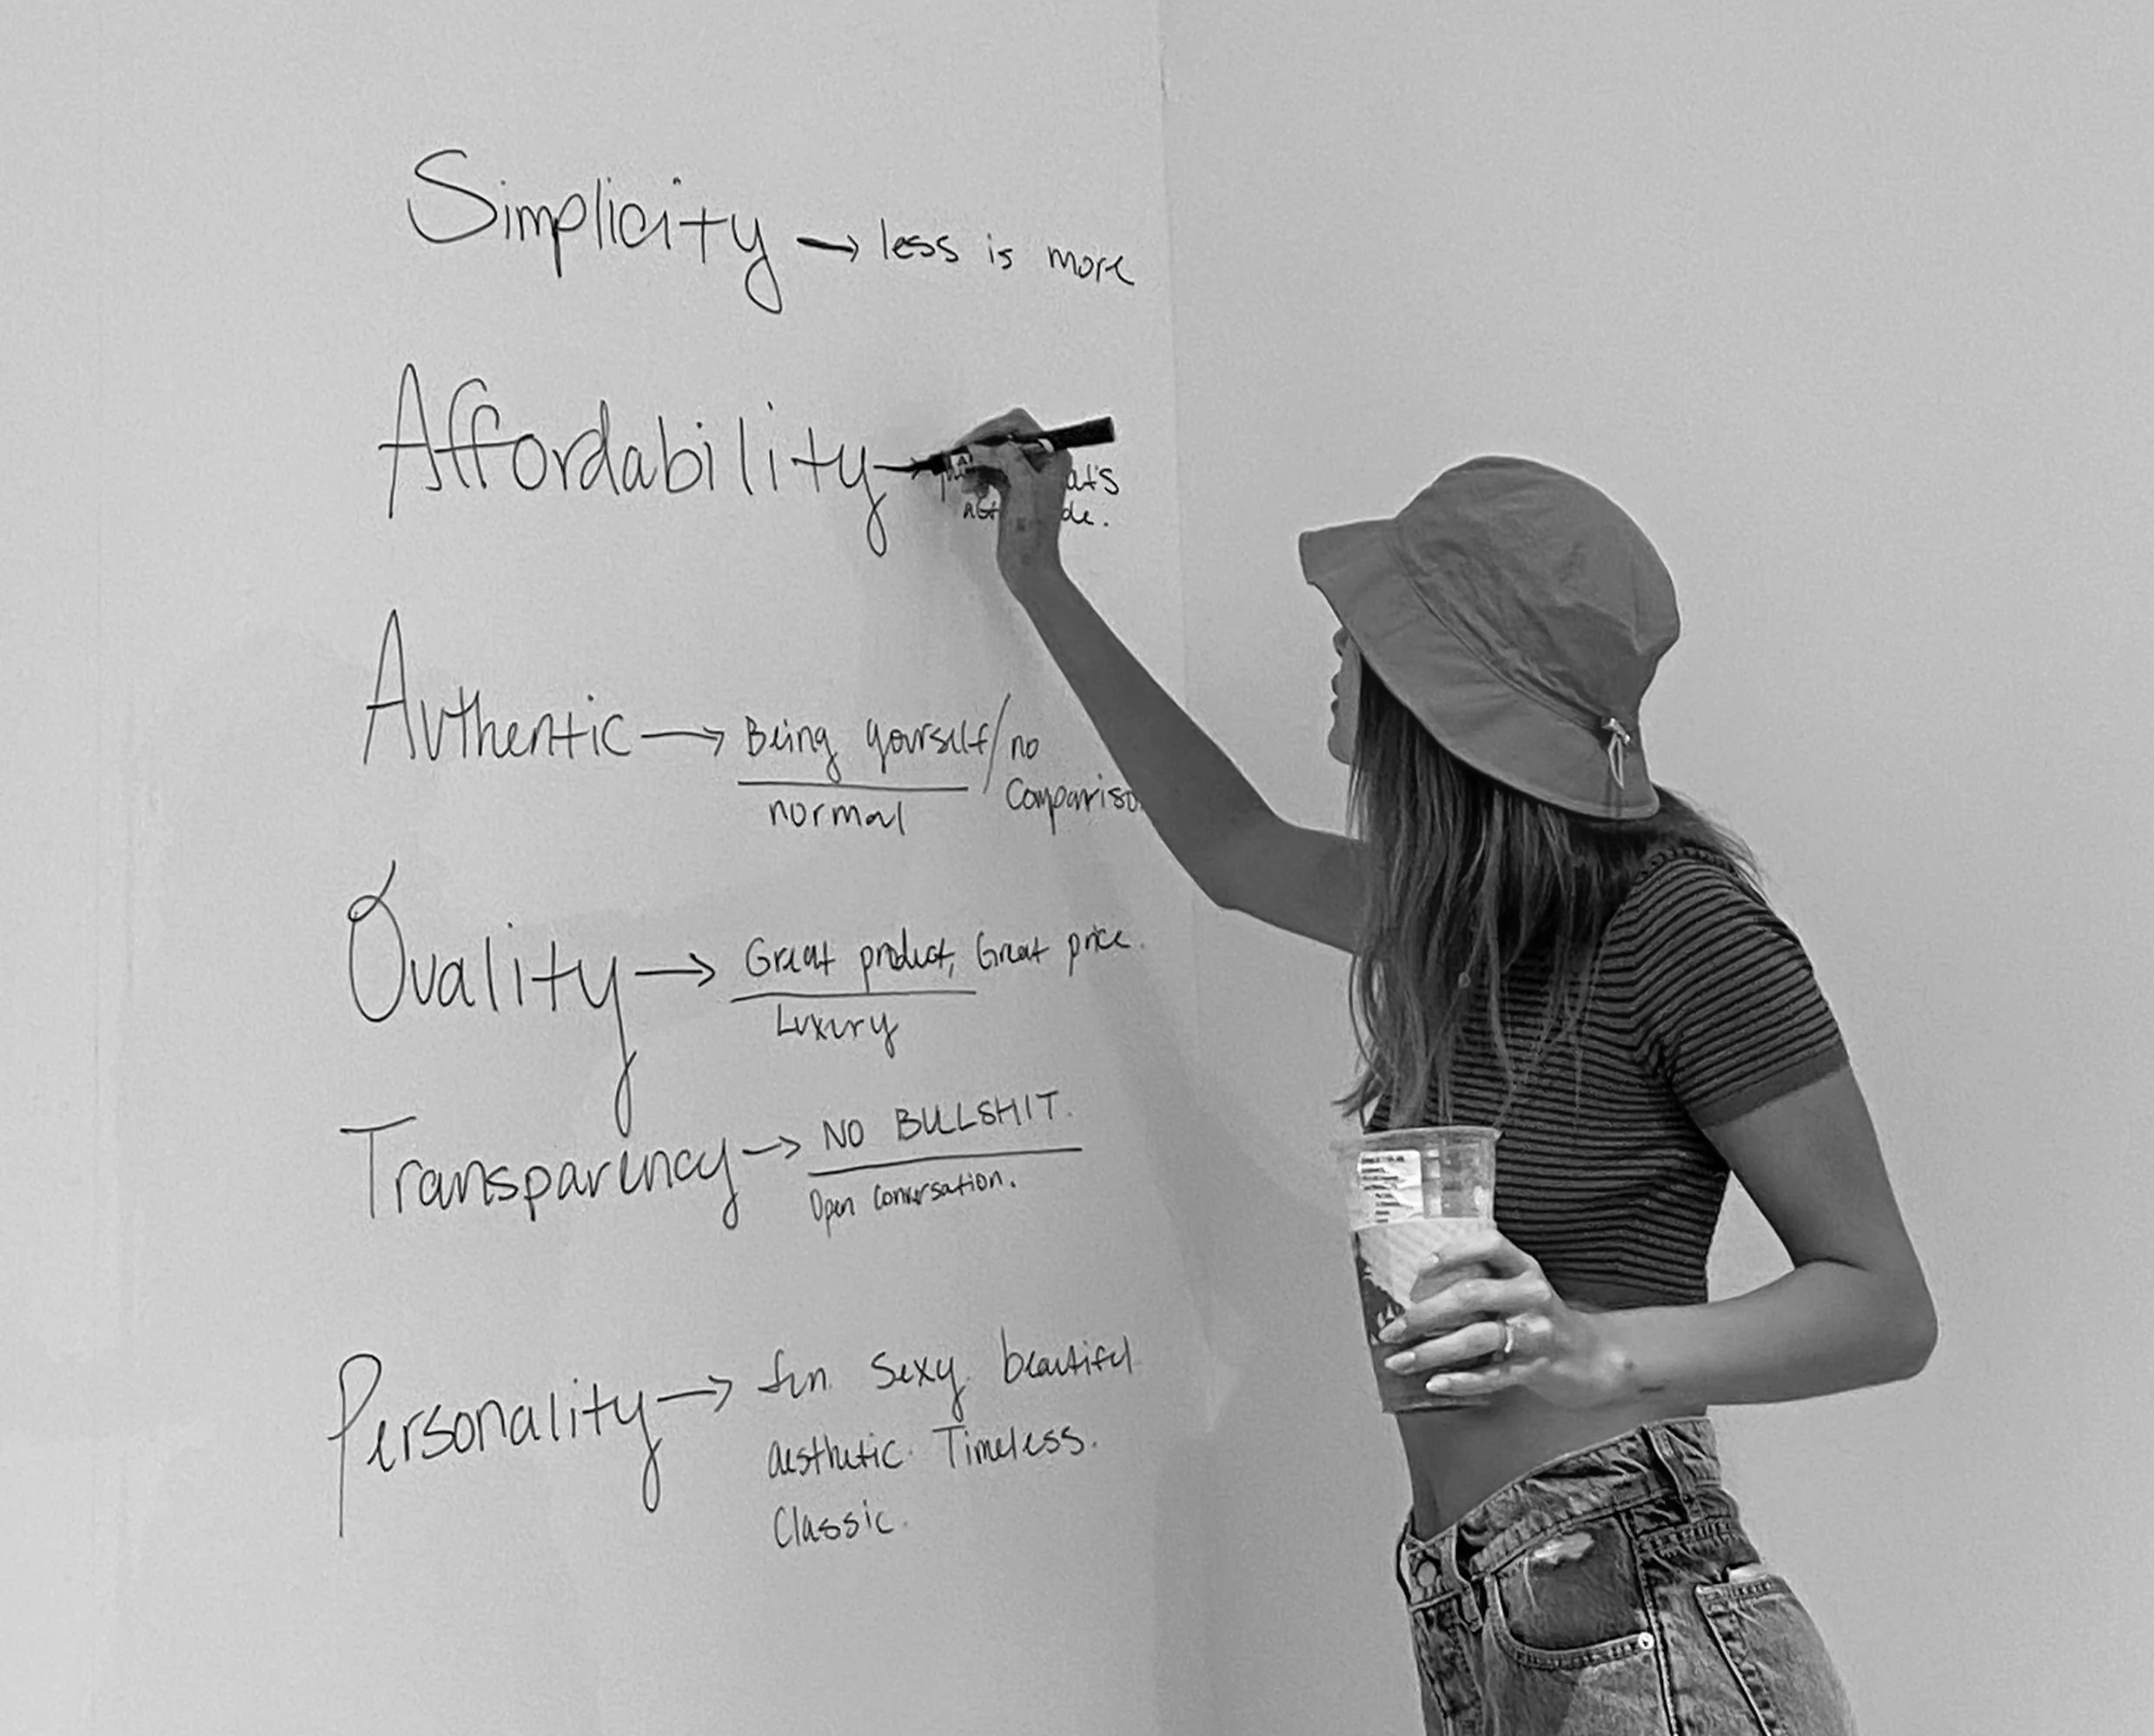 Simplicity → less is more
Affordability →
Authentic → Being yourself / no
normal
Quality → Great product, Great price.
Luxury
Transparency → NO BULLSHIT.
Open conversation.
Personality → fun. Sexy. beautiful
aesthetic. Timeless.
Classic.